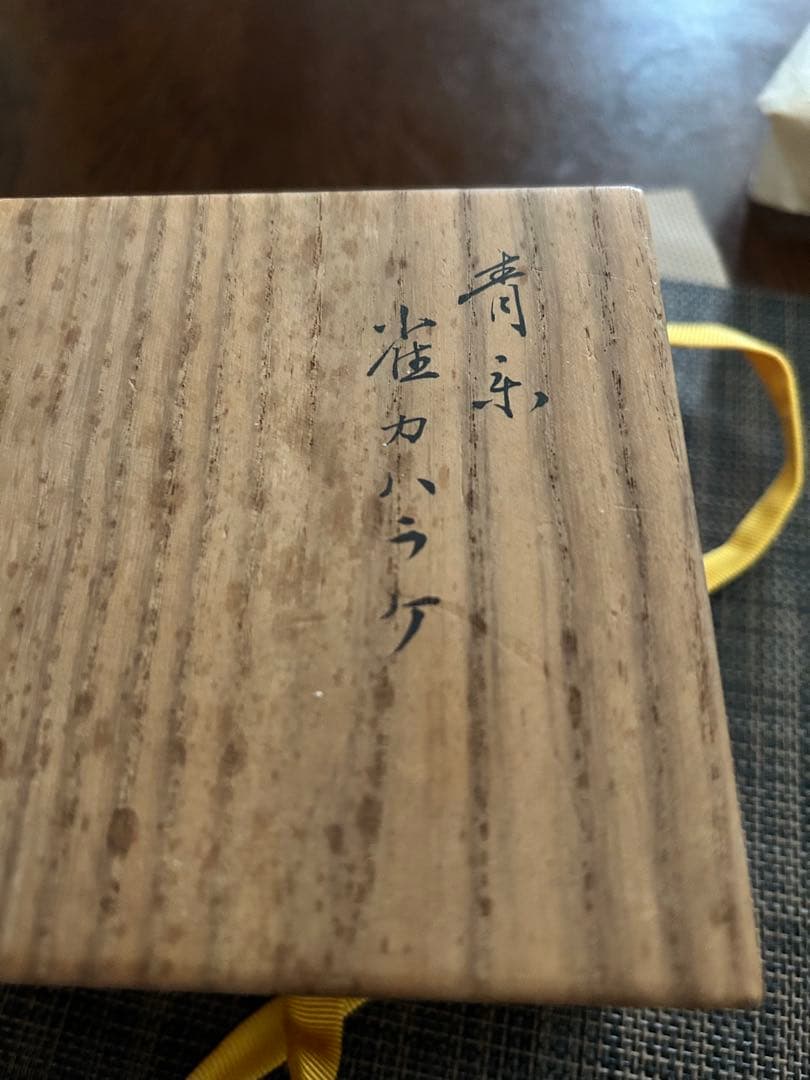 青楽
雀カハラケ